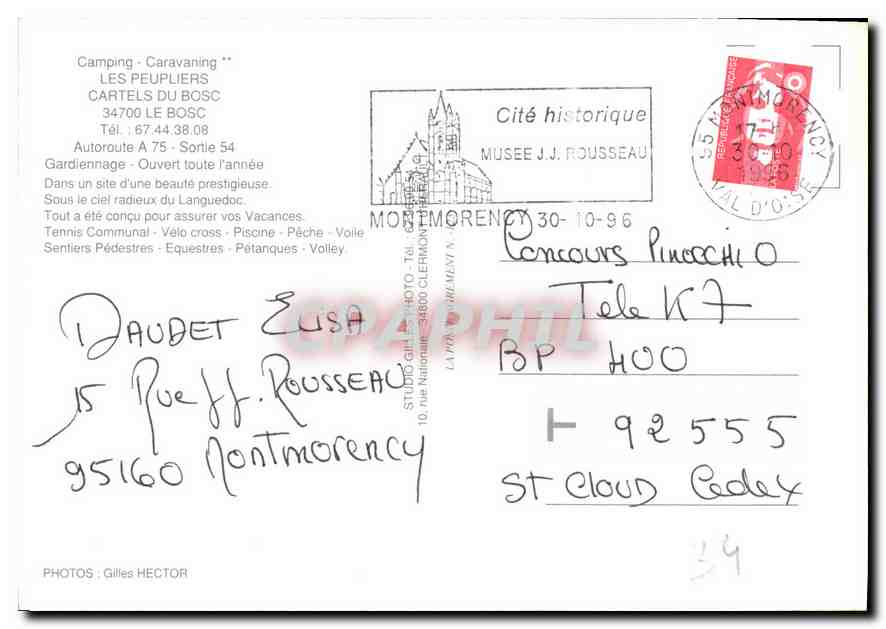 Camping - Caravaning **
LES PEUPLIERS
CARTELS DU BOSC
34700 LE BOSC
Tél. : 67.44.38.08
Autoroute A 75 - Sortie 54
Gardiennage - Ouvert toute l'année
Dans un site d'une beauté prestigieuse.
Sous le ciel radieux du Languedoc.
Tout a été conçu pour assurer vos Vacances.
Tennis Communal - Vélo cross - Piscine - Pêche - Voile
Sentiers Pédestres - Equestres - Pétanques - Volley.
Cité historique
MUSEE J.J. ROUSSEAU
MONTMORENCY 30-10-96
REPUBLIQUE FRANÇAISE
LA POSTE
95 MONTMORENCY
17 H
30-10
1996
VAL D'OISE
DAUDET ELISA
15 Rue JJ. ROUSSEAU
95160 Montmorency
STUDIO GILLES PHOTO - Tél. :
10, rue Nationale - 34800 CLERMONT
Concours PINOCCHIO
Tele K7
BP 400
T 92555
ST CLOUD Cedex
34
PHOTOS : Gilles HECTOR
CPAPHIL